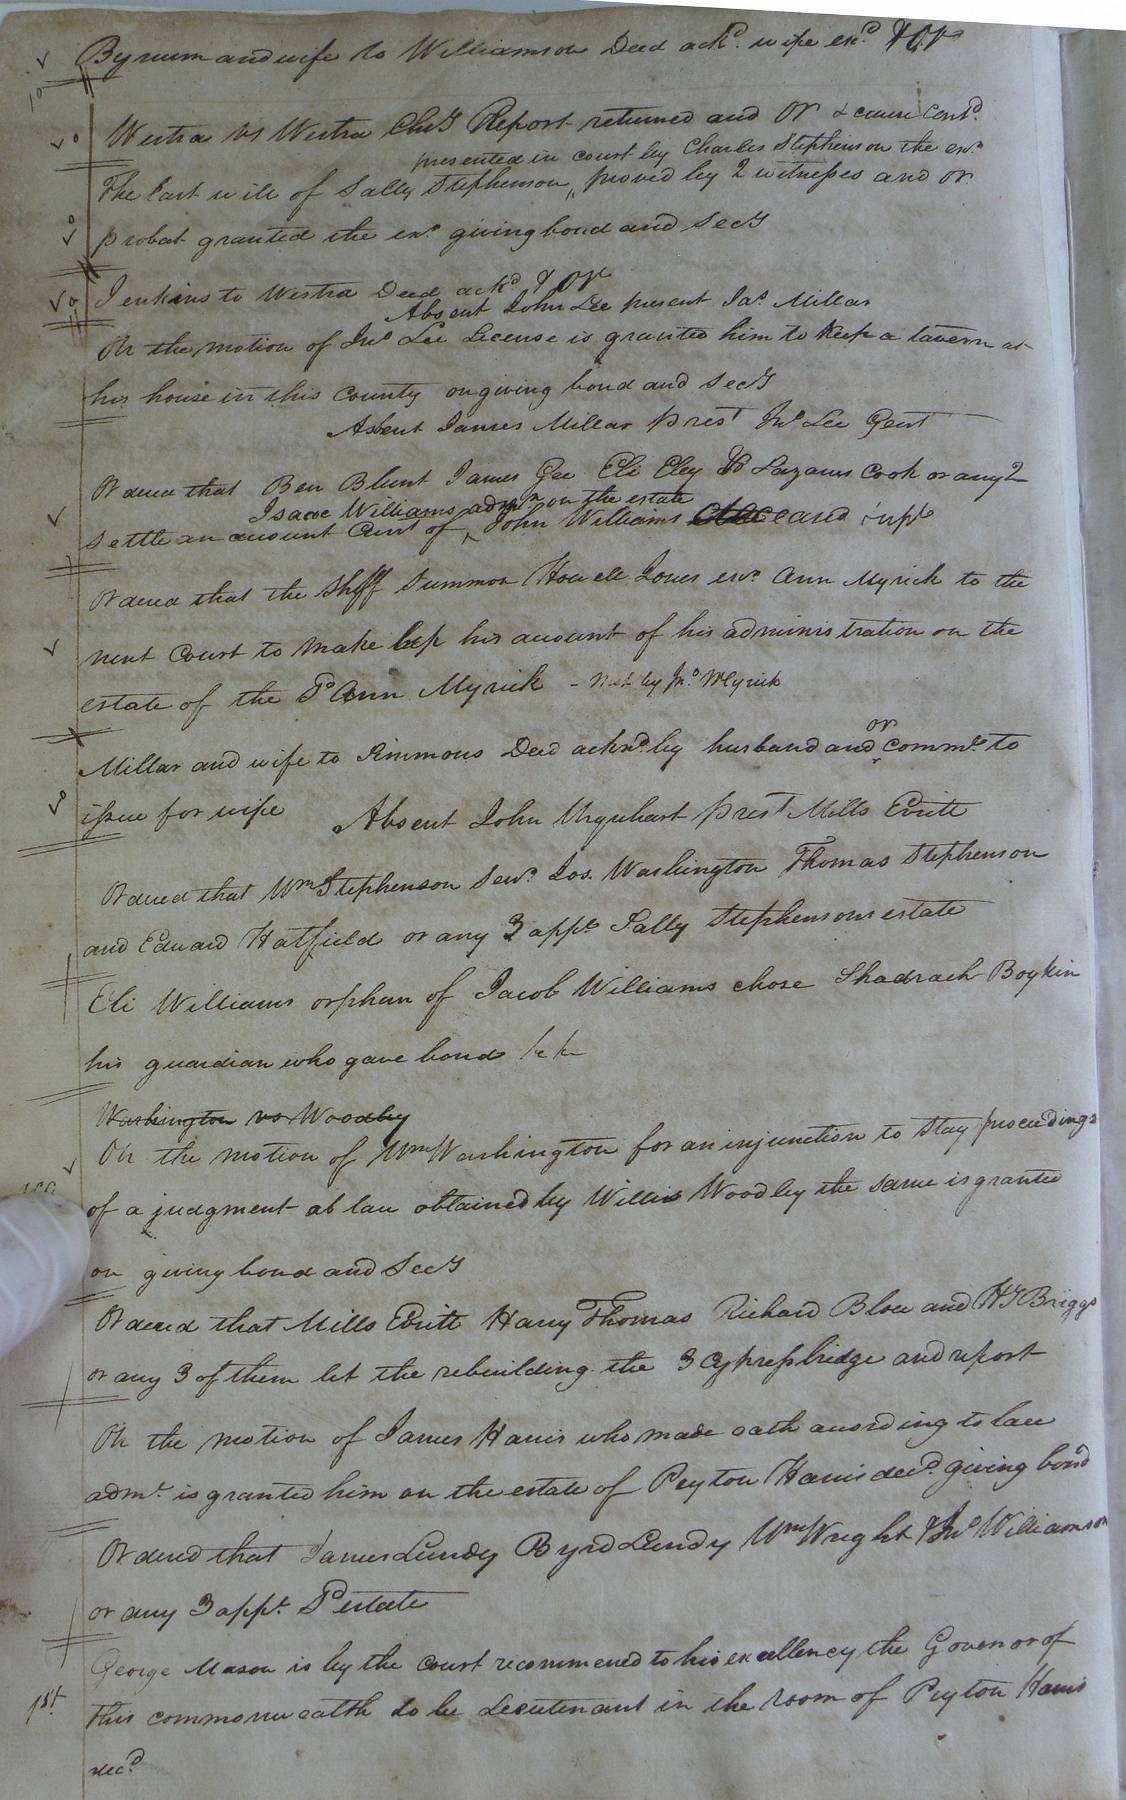 Bynum and wife to Williamson Deed ackd. wife exd. & Or
Westra vs Westra Chy Report returned and Or & cause Contd.
presented in court by Charles Stephenson the exr.
The last will of Sally Stephenson, proved by 2 witnesses and or
probat granted the exr. giving bond and Secy
Jenkins to Westra Deed ackd. & Or
Absent John Lee present Jas. Millar
On the motion of Jno. Lee License is granted him to keep a tavern at
his house in this county on giving bond and Secy
Absent James Millar prest Jno. Lee Gent
Ordered that Ben Blunt James Gee Eli Eley & Lazarus Cook or any 2
Isaac Williams admr. on the estate
settle an account Curt of John Williams and
Ordered that the Shff Summon Howell Jones exr. Ann Myrick to the
next Court to make up his account of his administration on the
estate of the Sd. Ann Myrick - by Jno. Myrick
Millar and wife to Simmons Deed acknd. by husband and or commn. to
issue for wife Absent John Urquhart prest Mills Eritt
Ordered that Wm Stephenson Senr. Jos. Washington Thomas Stephenson
and Edward Hatfield or any 3 appr. Sally Stephensons estate
Eli Williams orphan of Jacob Williams chose Shadrach Boykin
his guardian who gave bond &c &c
Washington vs Woodby
On the motion of Wm Washington for an injunction to stay proceedings
of a judgment at law obtained by Willis Woodby the same is granted
on giving bond and Secy
Ordered that Mills Eritt Harry Thomas Richard Blow and HT Briggs
or any 3 of them let the rebuilding the 3 Cypress bridge and report
On the motion of James Harris who made oath according to law
admn. is granted him on the estate of Peyton Harris decd. giving bond
Ordered that James Lundy Byrd Lundy Wm Wright & Jno Williamson
or any 3 appr. Sd estate
George Mason is by the court recommened to his excellency the Govenor of
1st. this commonwealth to be Lieutenant in the room of Peyton Harris
decd.